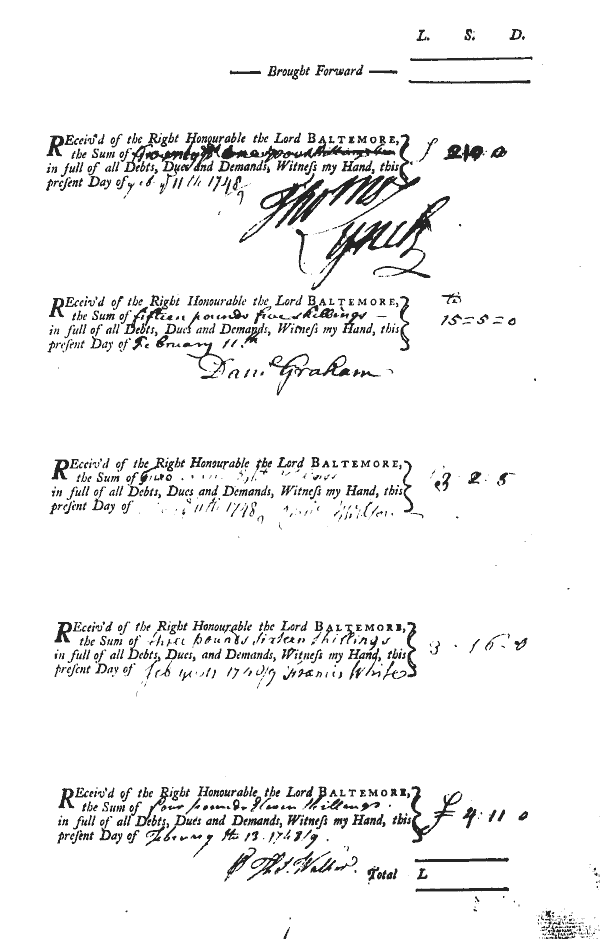 L. S. D.
Brought Forward
REceiv'd of the Right Honourable the Lord BALTEMORE,
the Sum of
in full of all Debts, Dues and Demands, Witneſs my Hand, this
preſent Day of 11th 1748/9
Thomas
Lynch
REceiv'd of the Right Honourable the Lord BALTEMORE,
the Sum of fifteen pounds five shillings — 15=5=0
in full of all Debts, Dues and Demands, Witneſs my Hand, this
preſent Day of February 11.th
Danl Graham
REceiv'd of the Right Honourable the Lord BALTEMORE, 3 2 5
the Sum of
in full of all Debts, Dues and Demands, Witneſs my Hand, this
preſent Day of 11th 1748/9
REceiv'd of the Right Honourable the Lord BALTEMORE,
the Sum of three pounds sixteen shillings 3 - 16 - 0
in full of all Debts, Dues, and Demands, Witneſs my Hand, this
preſent Day of feb 1748/9 Francis White
REceiv'd of the Right Honourable the Lord BALTEMORE,
the Sum of four pounds Eleven shillings. £ 4. 11 0
in full of all Debts, Dues and Demands, Witneſs my Hand, this
preſent Day of Febuary th 13. 1748/9.
Thos. Walker. Total L